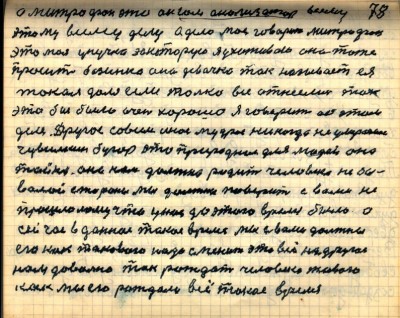 о митрофан это он сам анализатор всему 78
этому всему делу а дело мое говорит митрофан
это моя внучка за которую я ухаживаю она тоже
просит ботинко она девачка так называет ея
токая дола если толко вы отнеслис так
это бы было очен хорошо я говорит об этом
деле. Другое совсем иное мудрое никогда не умираемое
чувилкин бугор это природное для людей оно
тайное оно нам должно родит человека не бы-
валой стороны мы должны поверит с вами не
прошлому что у нас до этого время было а
сей час в данное такое время мы с вами должны
его как такового надо сменит это всё на другое
нам довольно так рождат человека живого
как мы его рождали всё такое время